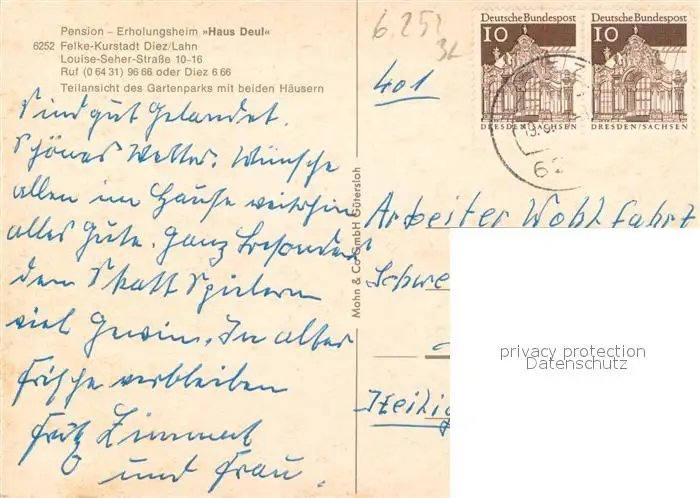 Pension - Erholungsheim »Haus Deul«
6252 Felke-Kurstadt Diez/Lahn
Louise-Seher-Straße 10-16
Ruf (0 64 31) 96 66 oder Diez 6 66
Teilansicht des Gartenparks mit beiden Häusern
Sind gut Gelandet.
Schönes Wetter. Wünsche
allen im Hause weiterhin
alles Gute. Ganz besonders
den Skatt Spielern
viel Gewinn. In alter
Frische verbleiben
Fritz Zimmat
und Frau.
Mohn & Co GmbH Gütersloh
6.252
401
Deutsche Bundespost
10
DRESDEN/SACHSEN
Deutsche Bundespost
10
DRESDEN/SACHSEN
62
Arbeiter Wohlfahrt
Schwe
Heilig
privacy protection
Datenschutz